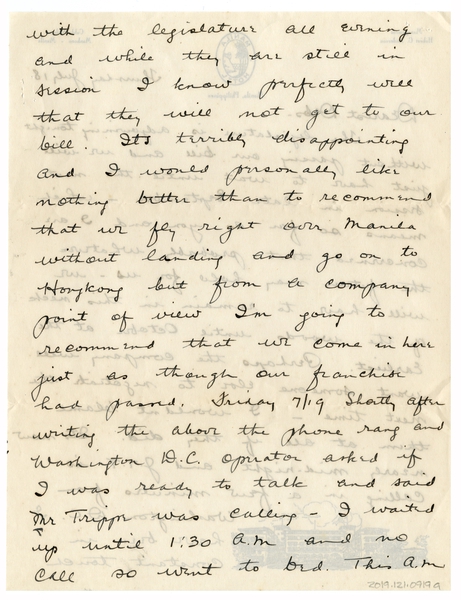 with the legislature all evening
and while they are still in
session I know perfectly well
that they will not get to our
bill. It's terribly disappointing
and I would personally like
nothing better than to recommend
that we fly right over Manila
without landing and go on to
Hongkong but from a company
point of view I'm going to
recommend that we come in here
just as though our franchise
had passed. Friday 7/19 Shortly after
writing the above the phone rang and
Washington D.C. operator asked if
I was ready to talk and said
Mr Trippe was calling - I waited
up until 1:30 A.M and no
call so went to bed. This A.M
2019.121.0919a